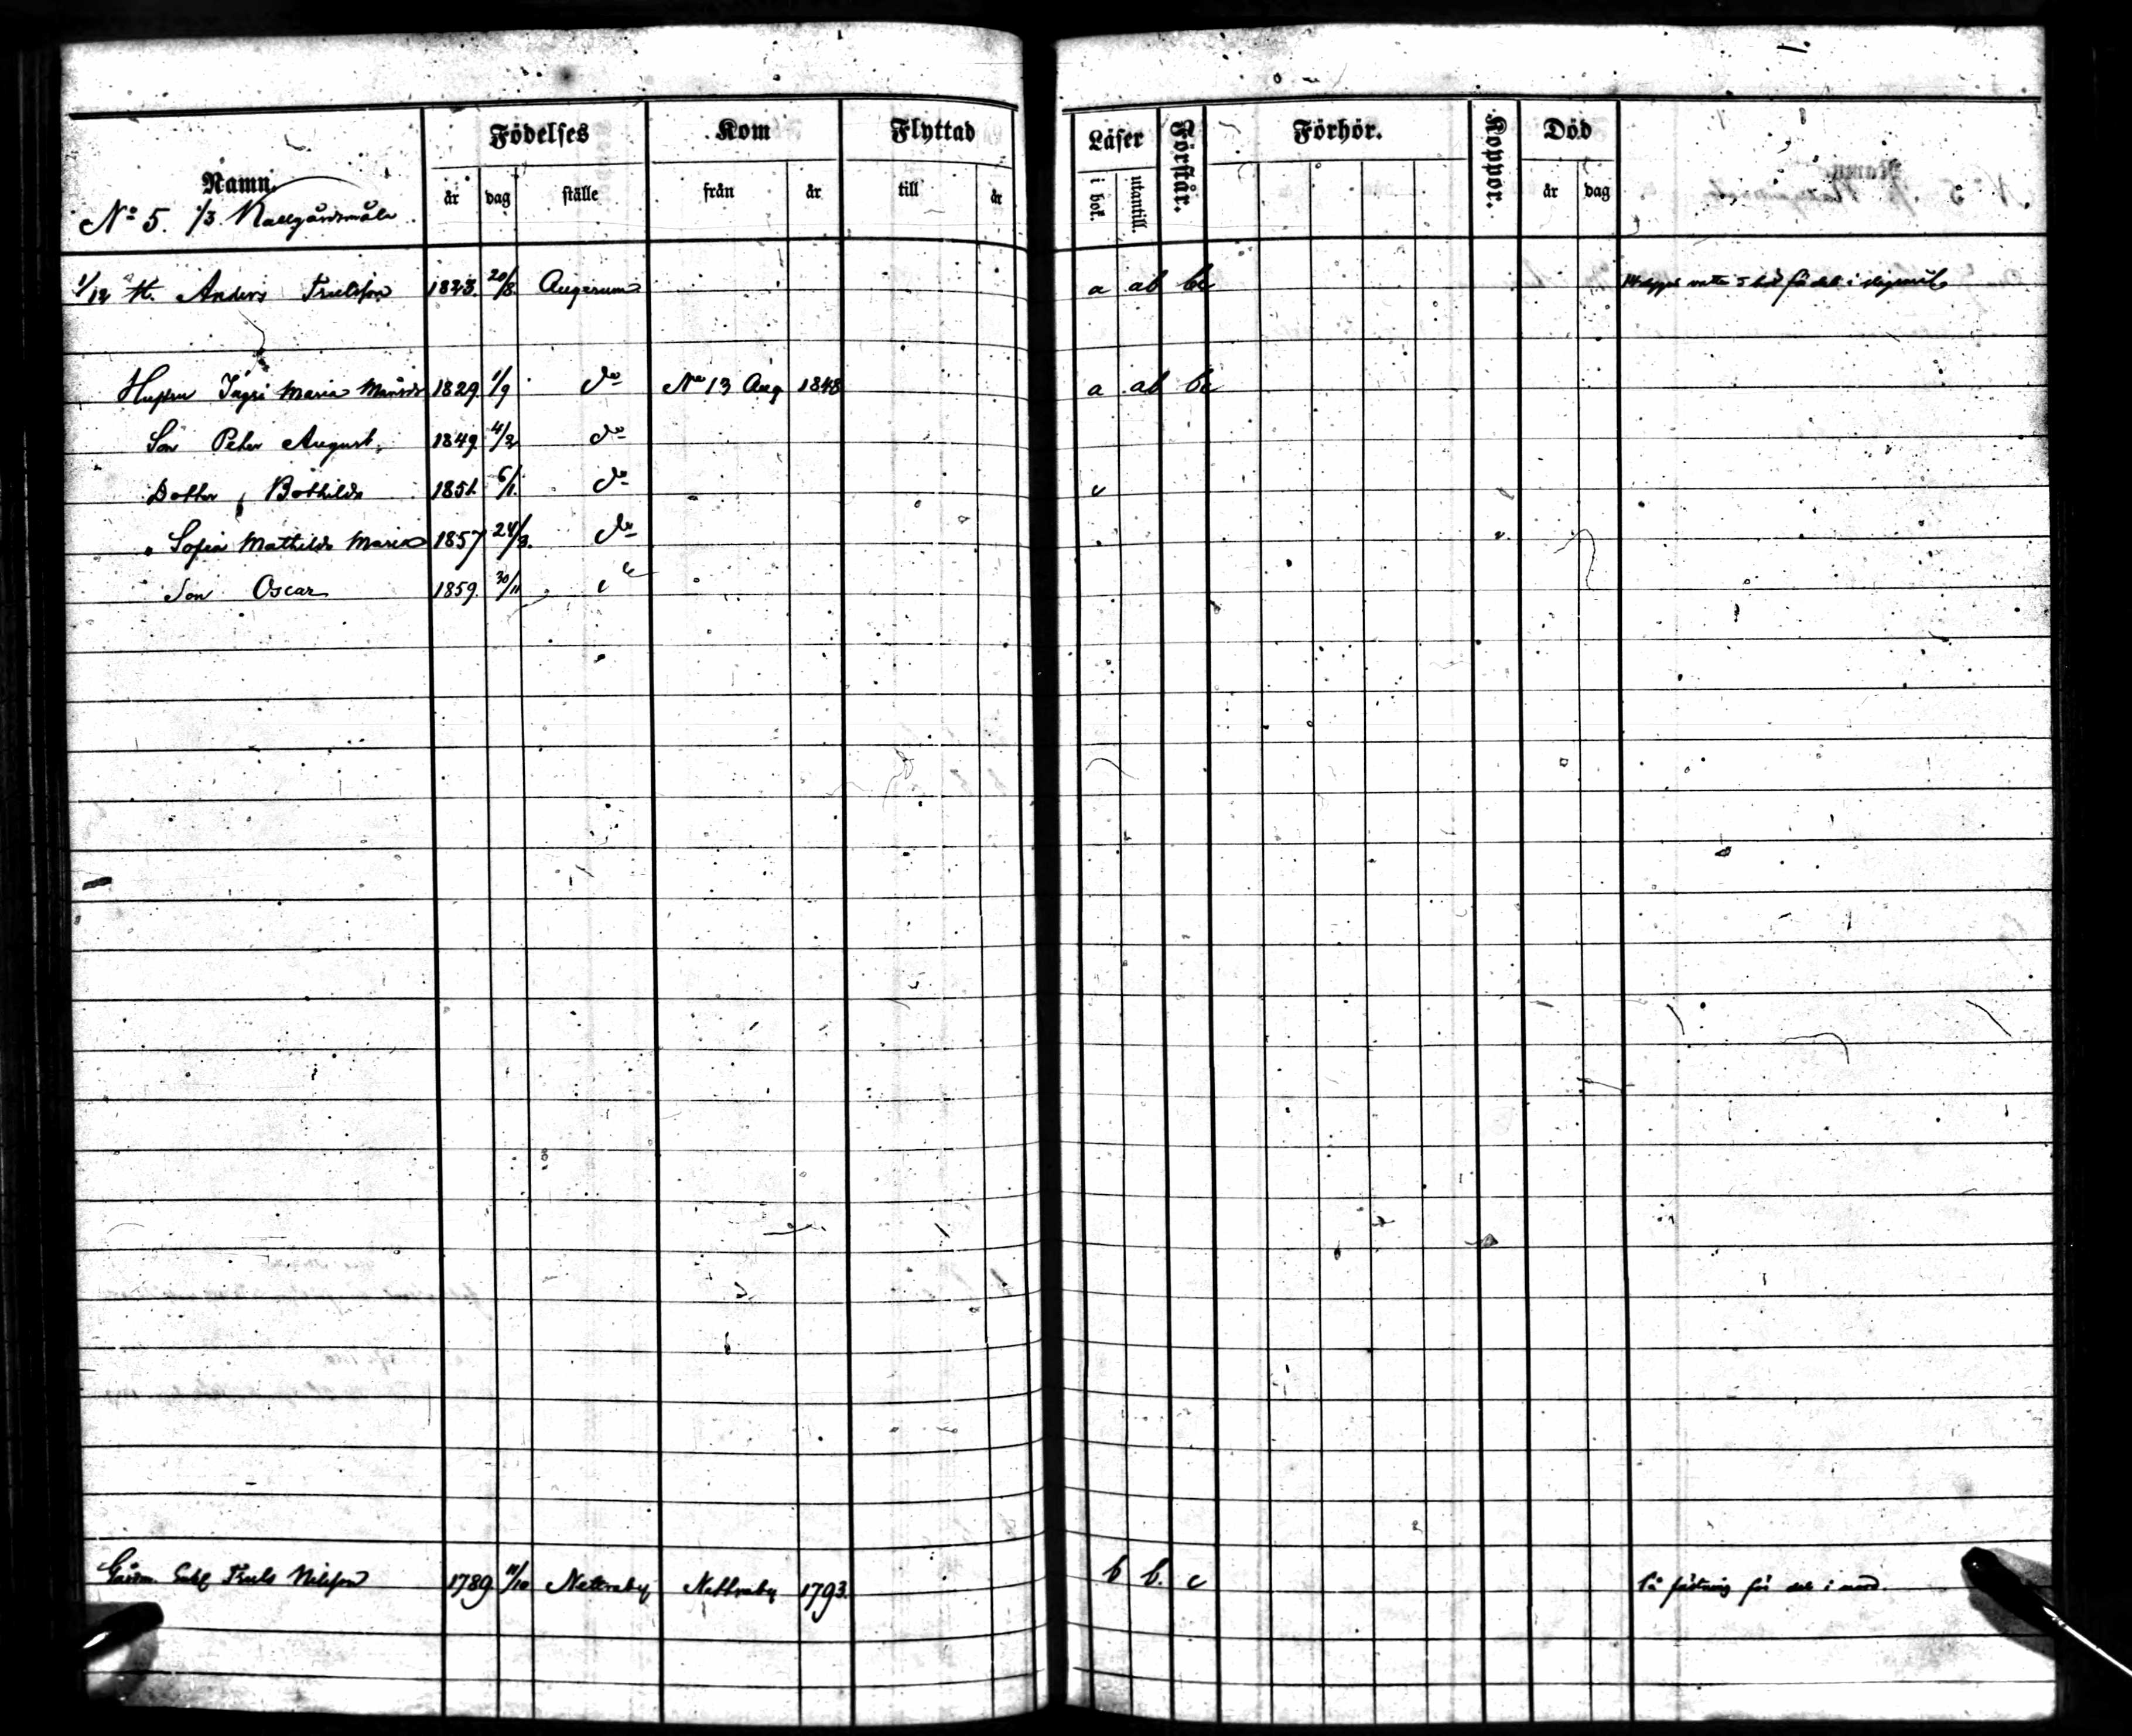 1.
Namn. Födelses Kom Flyttad Läser Förstår. Förhör. Koppor. Död
år dag ställe från år till år i bok. utantill. år dag
No 5. 1/3 Nallgårdsmåla
1/12 H. Anders Truelsson 1823. 20/8 Augerum a ab bc
Hustru Ingri Maria Månsd. 1829. 1/9 do No 13 Aug 1848 a ab bc
Son Peter August. 1849. 4/2 do
Dotter Bothilda 1851. 6/1. do c
" Sofia Mathilda Maria 1857 24/3. do
Son Oscar 1859. 30/11
Truls Nilsson 1789 11/10 Nettraby Nettraby 1793. b b. c